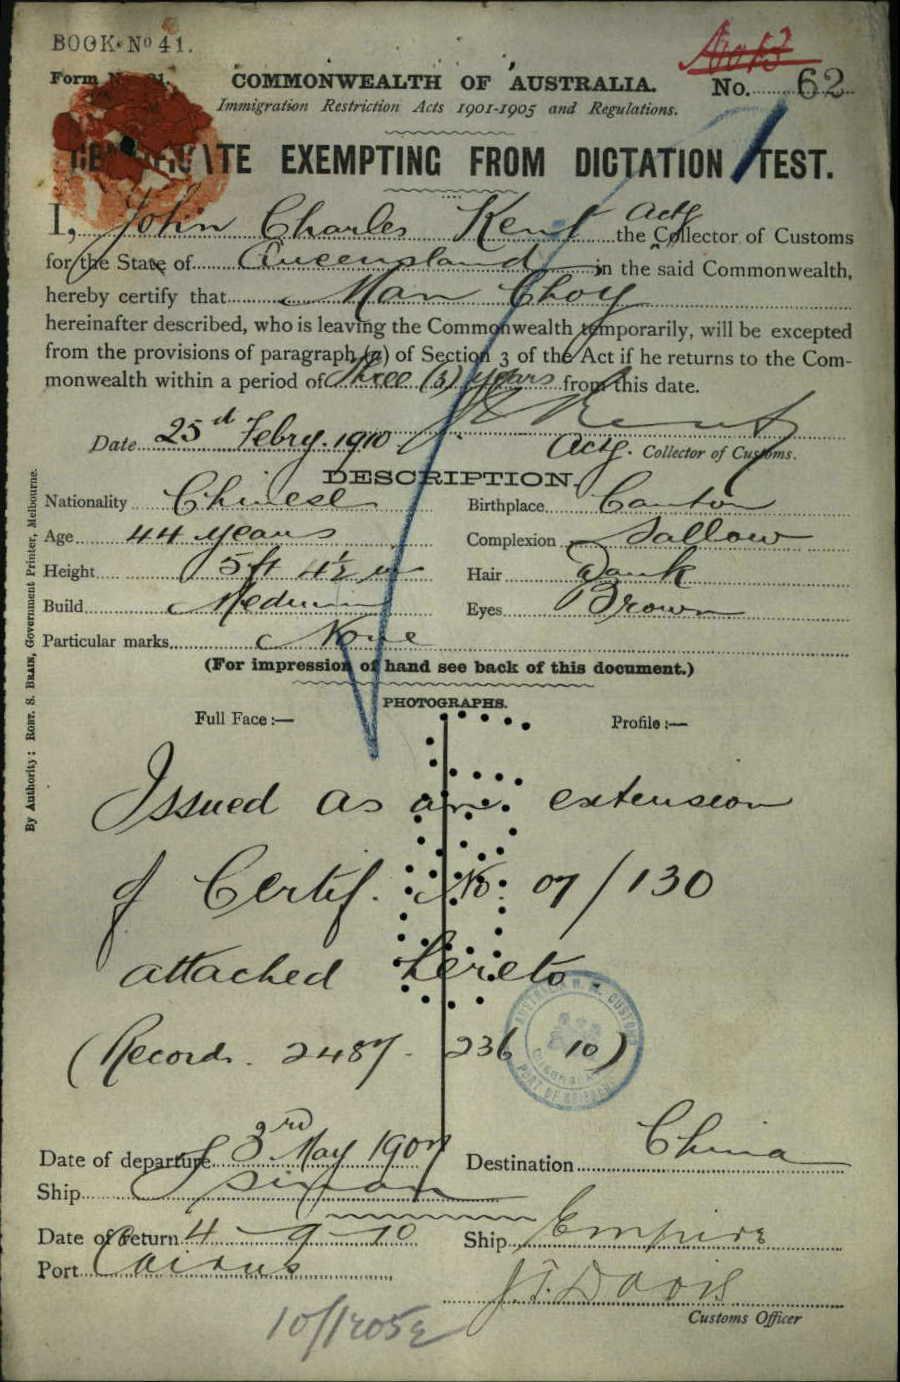 BOOK No 41.
Form No. 21.
COMMONWEALTH OF AUSTRALIA.
No. 62
Immigration Restriction Acts 1901-1905 and Regulations.
CERTIFICATE EXEMPTING FROM DICTATION TEST.
I, John Charles Kent Actg the Collector of Customs
for the State of Queensland in the said Commonwealth,
hereby certify that Man Choy
hereinafter described, who is leaving the Commonwealth temporarily, will be excepted
from the provisions of paragraph (a) of Section 3 of the Act if he returns to the Com-
monwealth within a period of Three (3) years from this date.
Date 25d Febry. 1910
J C Kent
Actg. Collector of Customs.
DESCRIPTION.
Nationality Chinese Birthplace Canton
Age 44 years Complexion Sallow
Height 5 ft 4½ in Hair Dark
Build Medium Eyes Brown
Particular marks None
(For impression of hand see back of this document.)
PHOTOGRAPHS.
Full Face :— Profile :—
Issued as an extension
of Certif. No. 07/130
attached hereto.
(Records. 2487. 236 10)
Date of departure 3rd May 1907 Destination China
Ship Tsinan
Date of return 4-9-10 Ship Empire
Port Cairns
J.T. Davis
Customs Officer
By Authority: ROBT. S. BRAIN, Government Printer, Melbourne.